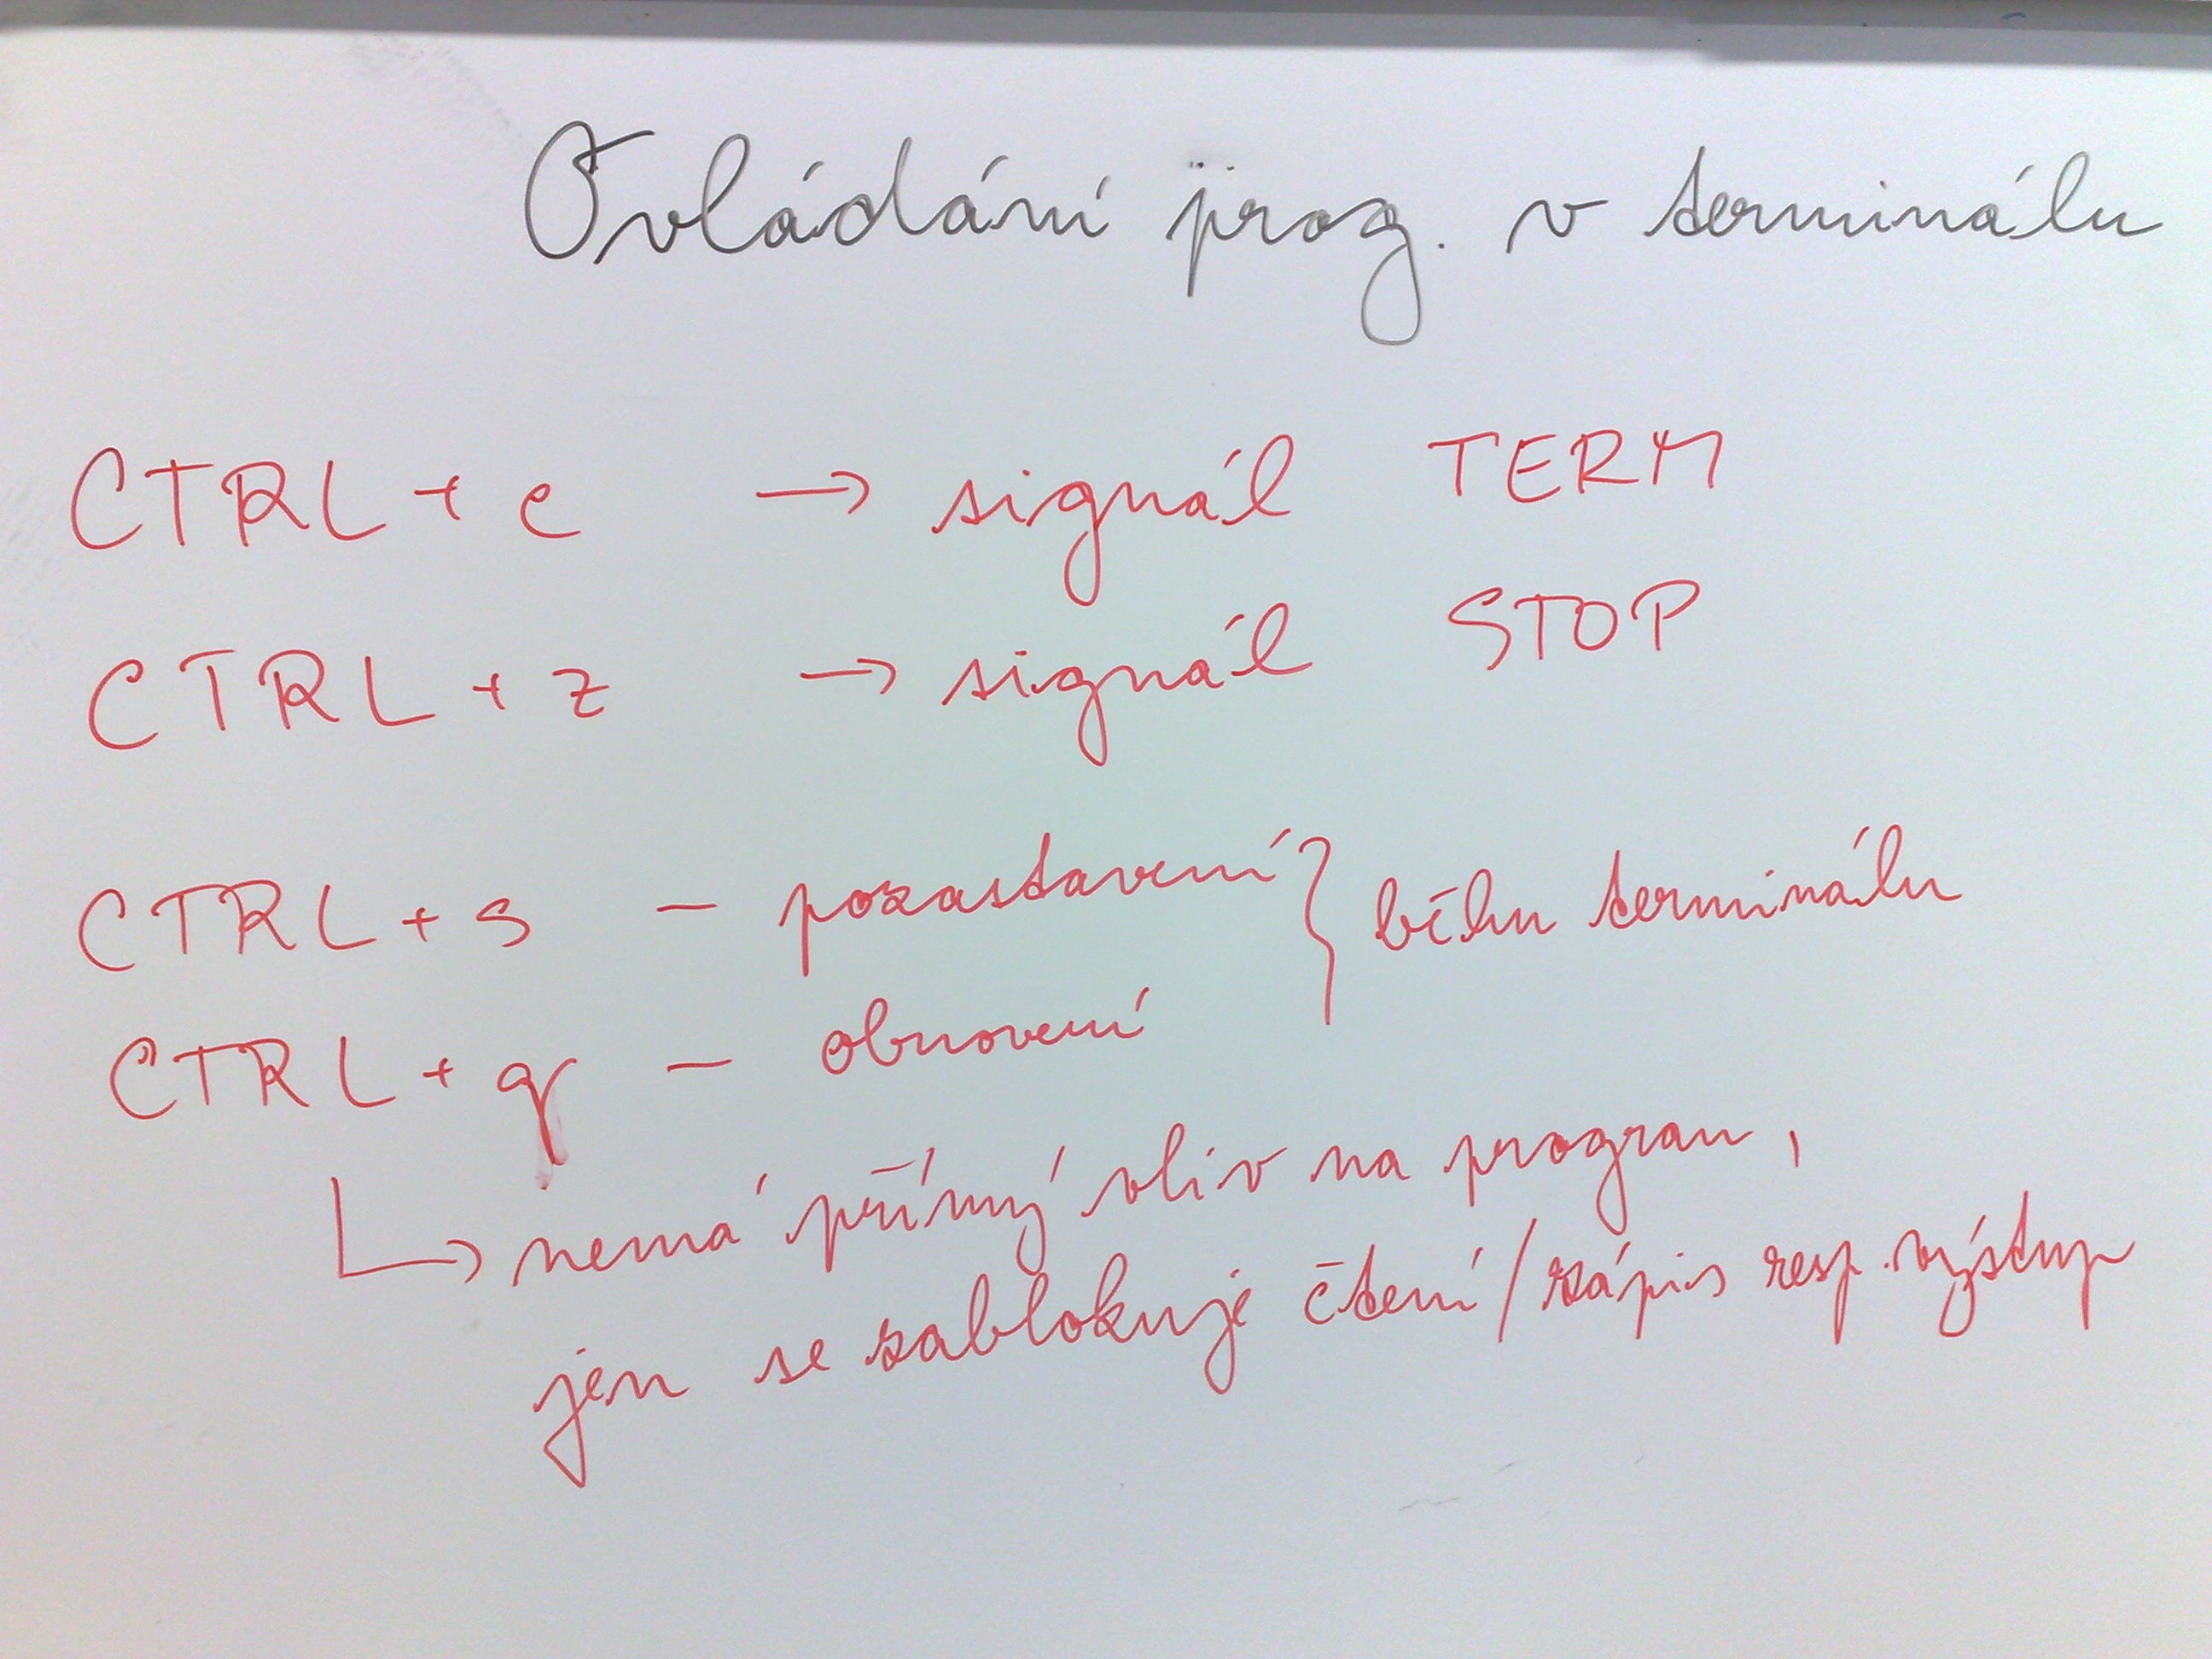 Ovládání prog. v terminálu
CTRL + c → signál TERM
CTRL + z → signál STOP
CTRL + s - pozastavení } běhu terminálu
CTRL + q - obnovení
↳ nemá přímý vliv na program,
jen se zablokuje čtení/zápis resp. výstup